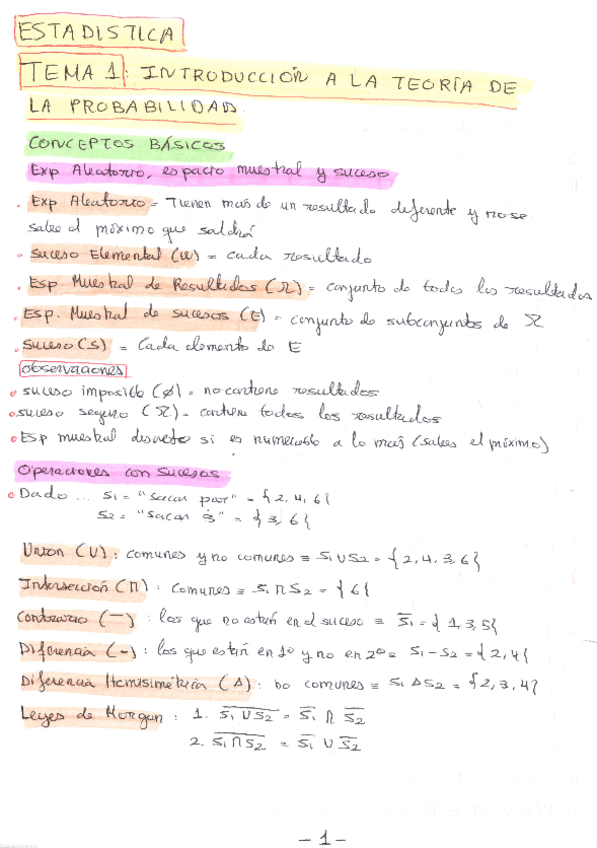 ESTADISTICA
TEMA 1: INTRODUCCIÓN A LA TEORÍA DE
LA PROBABILIDAD.
CONCEPTOS BÁSICOS
Exp Aleatorio, espacio muestral y suceso
. Exp Aleatorio = Tienen mas de un resultado diferente y no se
sabe el próximo que saldrá
. Suceso Elemental (W) = cada resultado
. Esp. Muestral de Resultados (Ω) = conjunto de todos los resultados
. Esp. Muestral de sucesos (E) = conjunto de subconjuntos de Ω
. Suceso (S) = Cada elemento de E
Observaciones
o suceso imposible (∅) = no contiene resultados
o suceso seguro (Ω) = contiene todos los resultados
o Esp muestral discreto si es numerable a lo mas (sabes el próximo)
Operaciones con sucesos
o Dado ... S1 = "Sacar par" = {2, 4, 6}
S2 = "Sacar 3̇" = {3, 6}
Union (U) : comunes y no comunes ≡ S1 U S2 = {2, 4, 3, 6}
Intersección (∩) : comunes ≡ S1 ∩ S2 = {6}
Contrario (—) : los que no estan en el suceso ≡ S̅1 = {1, 3, 5}
Diferencia (-) : los que están en 1º y no en 2º ≡ S1 - S2 = {2, 4}
Diferencia Hemisimétrica (Δ) : no comunes ≡ S1 Δ S2 = {2, 3, 4}
Leyes de Morgan : 1. S̅1̅ ̅U̅ ̅S̅2̅ = S̅1 ∩ S̅2
2. S̅1̅ ̅∩̅ ̅S̅2̅ = S̅1 U S̅2
- 1 -